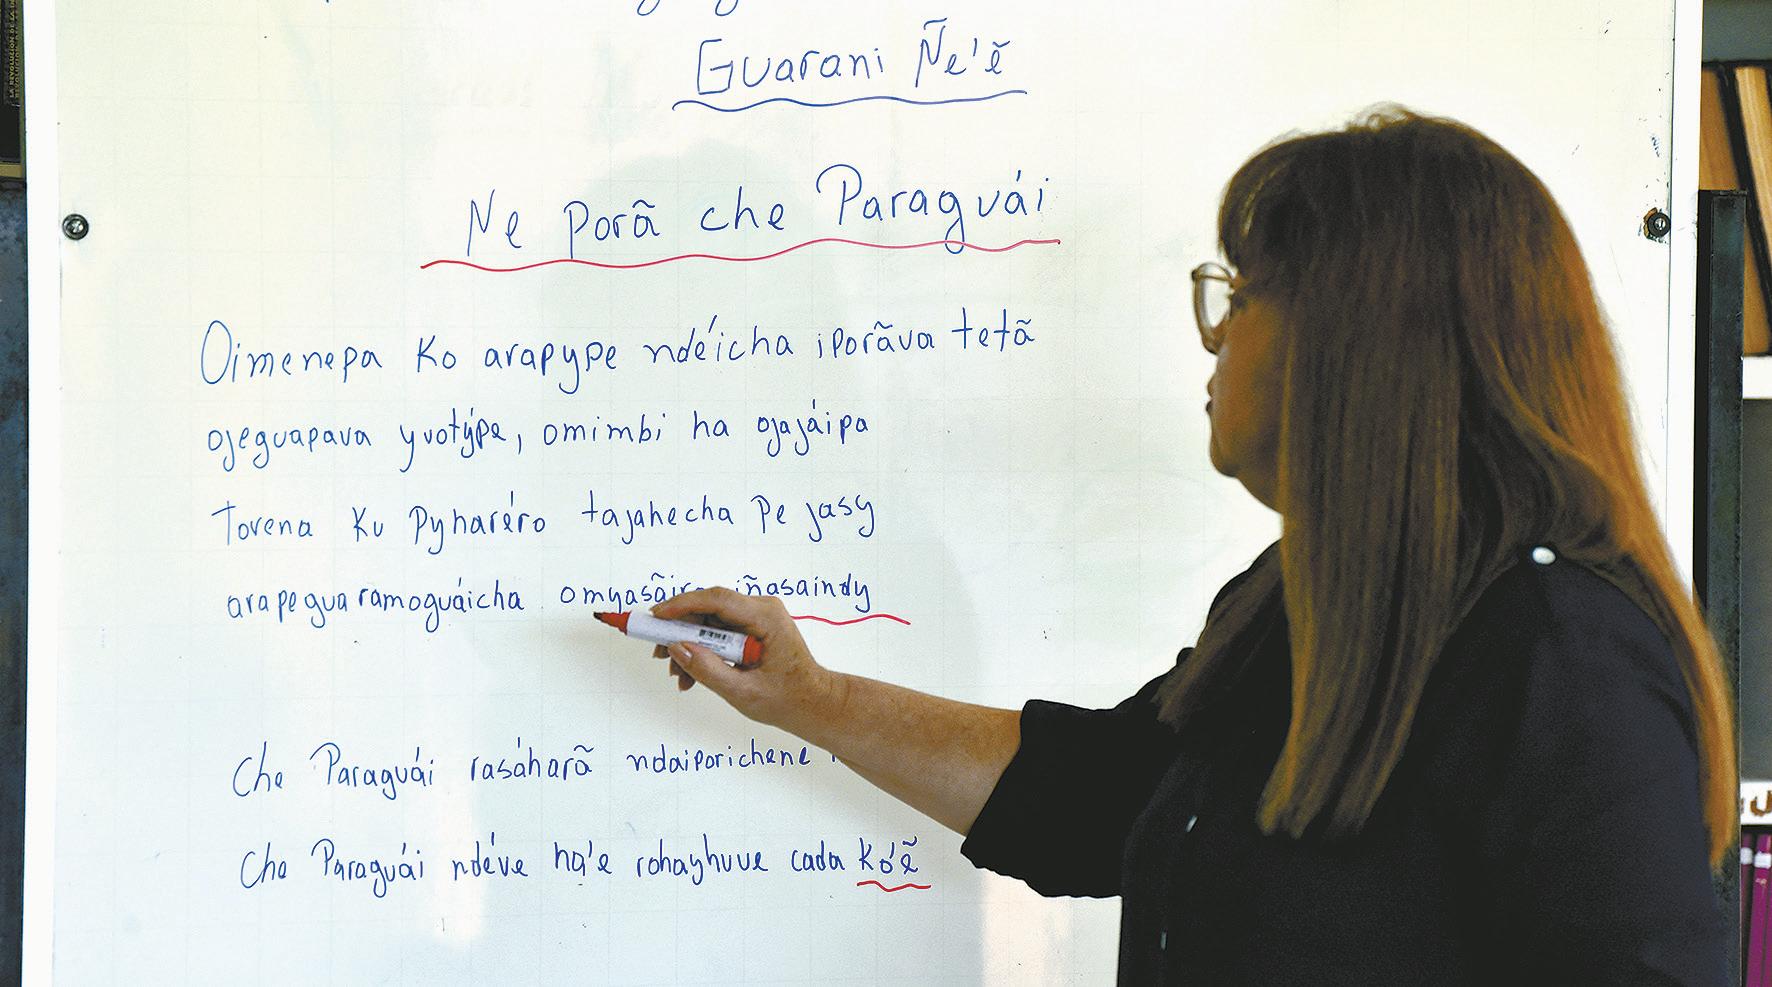 Guarani Ñe'ẽ
Ne Porã che Paraguái
Oimenepa Ko arapype ndéicha iporãva tetã
ojeguapava yvotýpe, omimbi ha ojajáipa
Torena Ku Pyharéro tajahecha Pe jasy
arapeguaramoguáicha iñasaindy
Che Paraguái rasáharã ndaiporichene
Che Paraguái ndéve ha'e rohayhuve cada Ko'ẽ